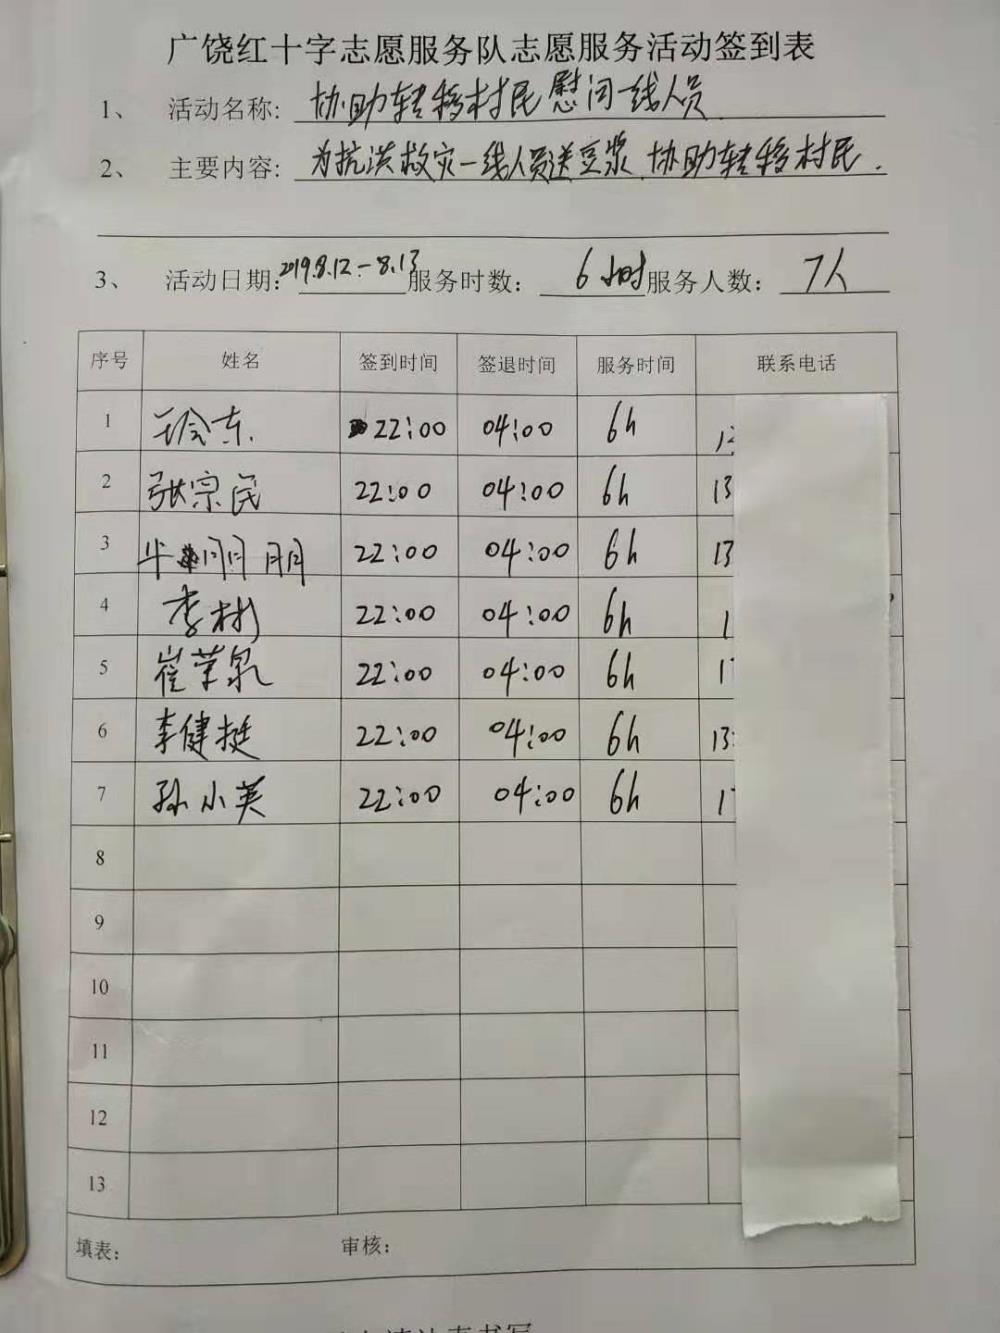 广饶红十字志愿服务队志愿服务活动签到表
1、 活动名称: 协助转移村民慰问一线人员
2、 主要内容: 为抗洪救灾一线人员送豆浆、协助转移村民.
3、 活动日期: 2019.8.12-8.13 服务时数: 6小时 服务人数: 7人
序号 姓名 签到时间 签退时间 服务时间 联系电话
1 22:00 04:00 6h
2 张宗民 22:00 04:00 6h 13
3 22:00 04:00 6h 13
4 李彬 22:00 04:00 6h 1
5 崔荣泉 22:00 04:00 6h 1
6 李健挺 22:00 04:00 6h 13
7 孙小英 22:00 04:00 6h 1
8
9
10
11
12
13
填表: 审核: